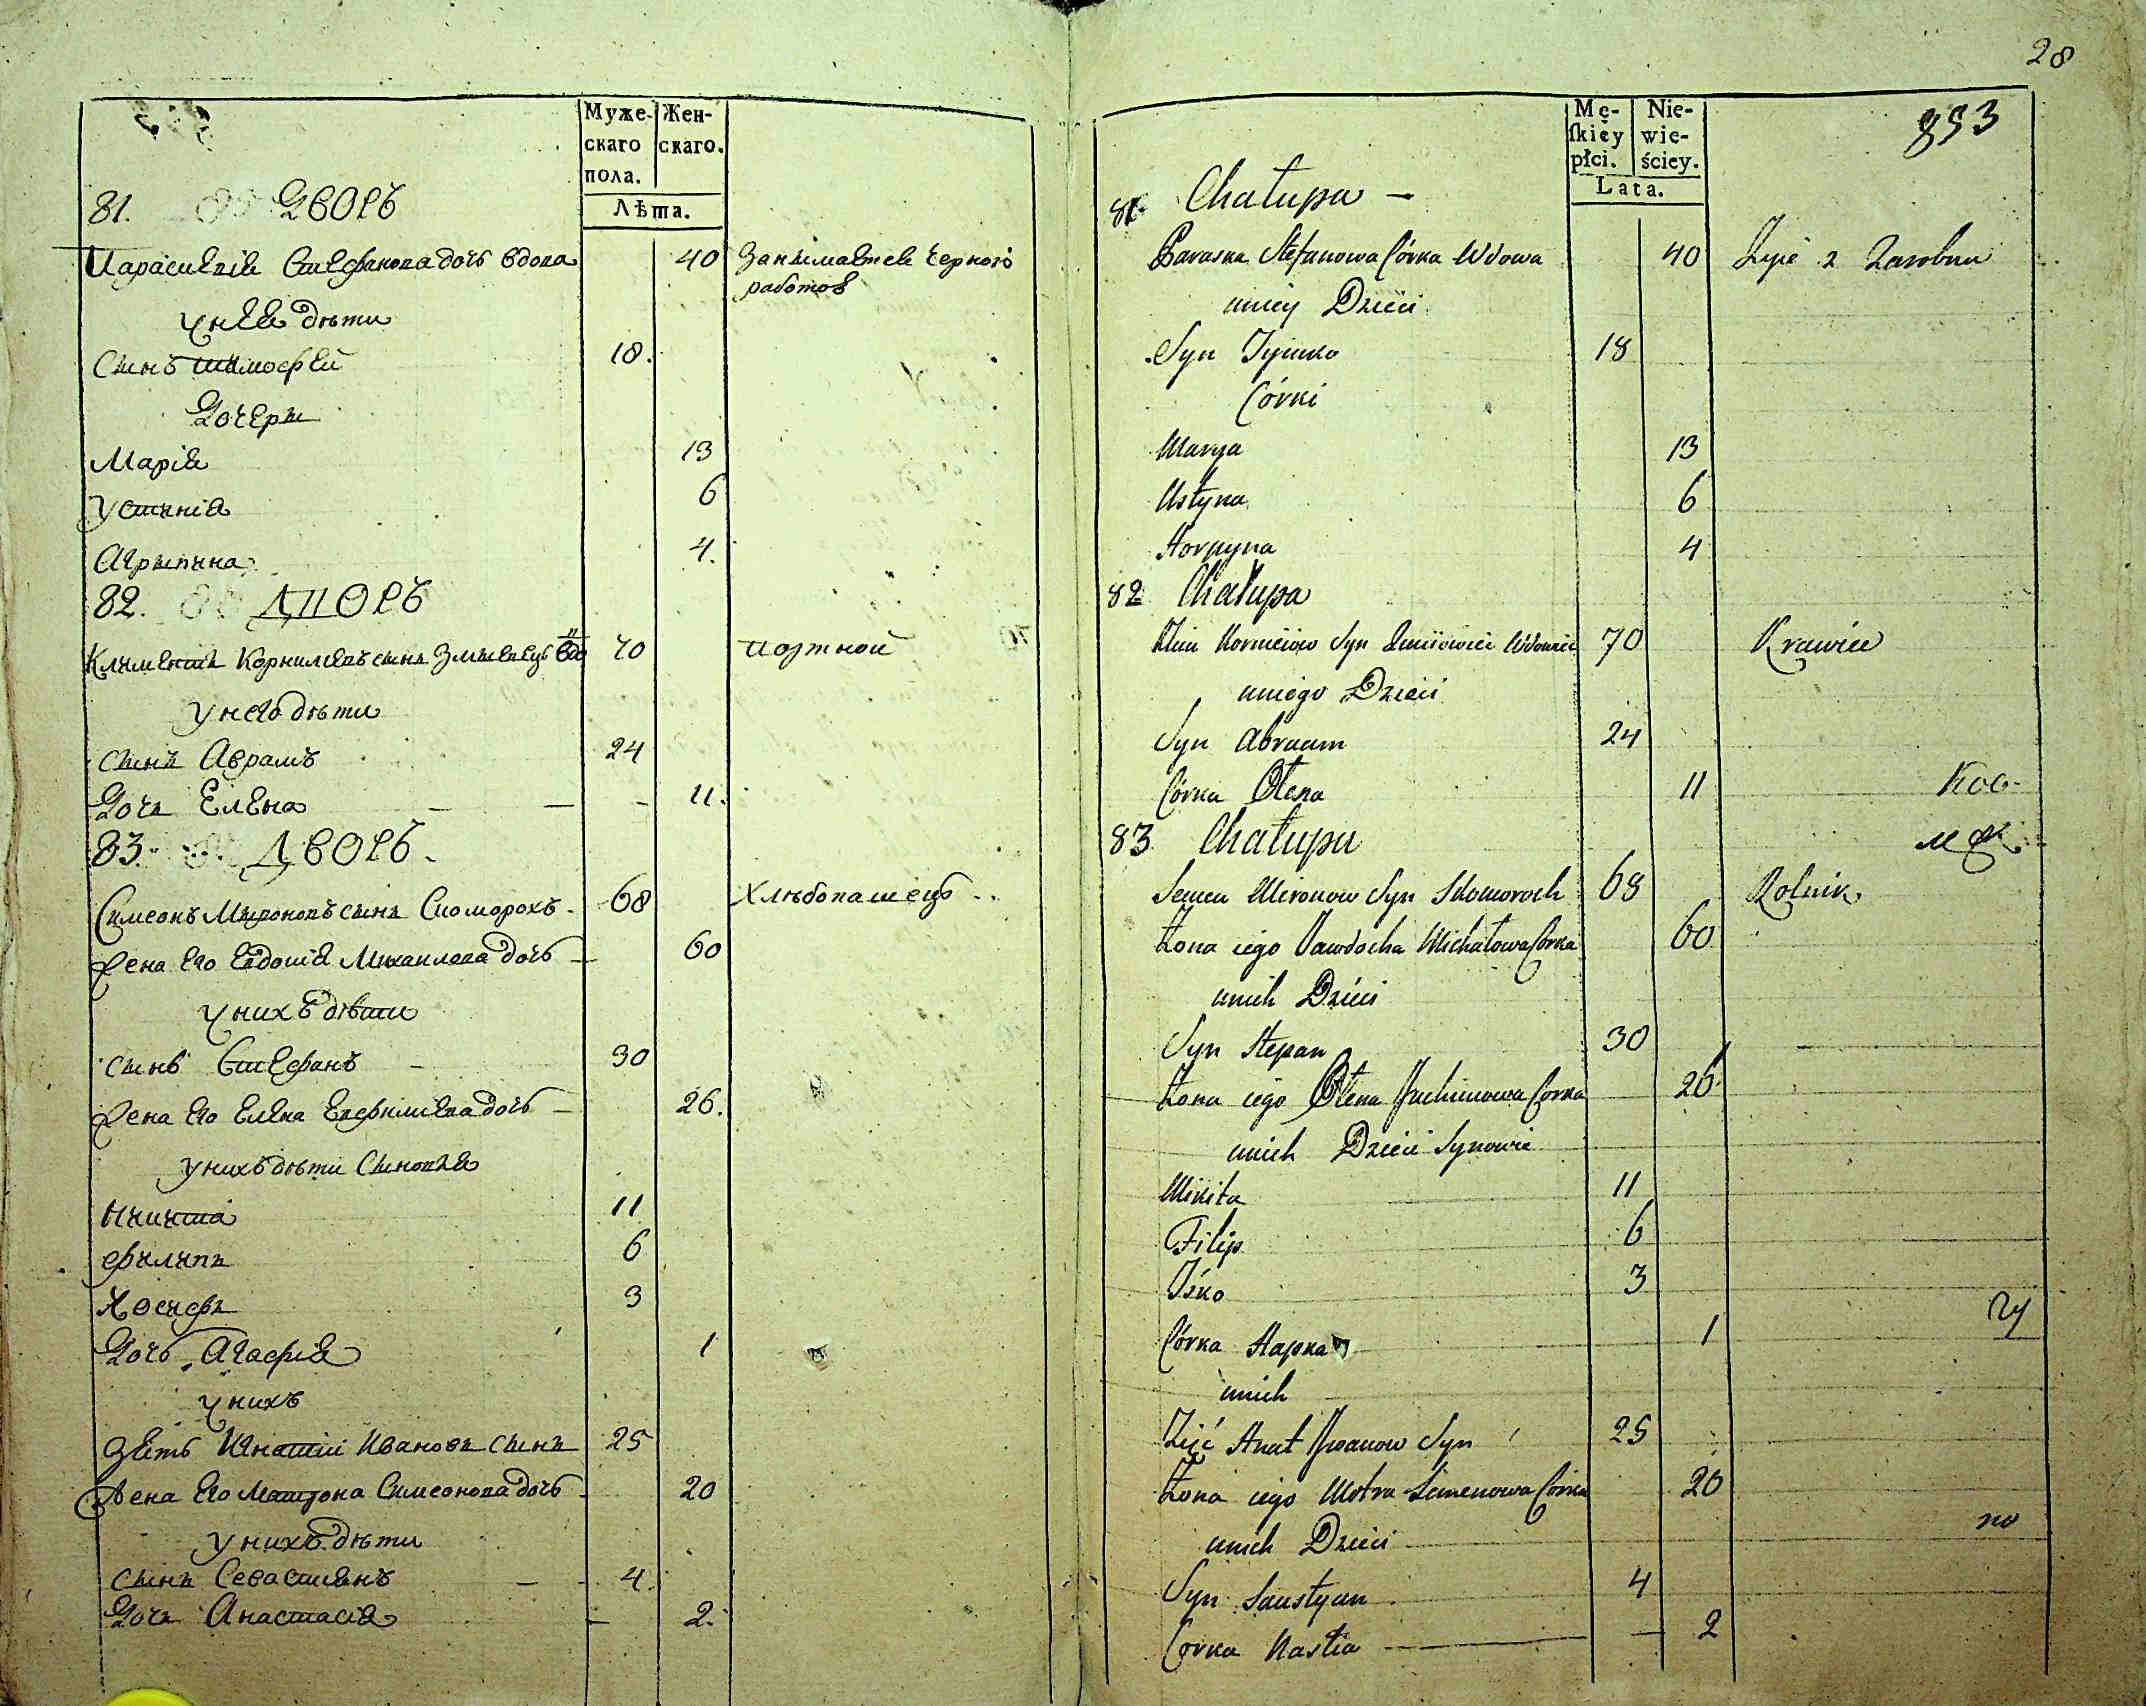 Муже-
скаго
пола.
Жен-
скаго.
Лѣта.
81. Дворъ
Параскевія Стефанова дочь вдова 40 Занимается черною
работою
У нея дѣти
Сынъ Тимофей 18.
Дочеры
Марія 13
Устинія 6
Агрыпина 4.
82. Дворъ
Климентъ Корнилевъ сынъ 70 Портной
У него дѣти
Сынъ Аврамъ 24
Дочь Елена — — - 11.
83. Дворъ.
Симеонъ Мыроновъ сынъ Скоморохъ. 68 Хлѣбопашецъ
Жена его Евдокія Михаилова дочь 60
У нихъ дѣти
Сынъ Стефанъ 30
Жена его Елена Евфимиева дочь 26.
У нихъ дѣти Сыновья
Никита 11
Филипъ 6
Иосифъ 3
Дочь Агафія 1
У нихъ
Зять Игнатій Ивановъ сынъ 25
Жена его Матрона Симеонова дочь 20
У нихъ дѣти
Сынъ Севастиянъ 4.
Дочь Анастасія 2.
28
Mę-
ſkiéy
płci.
Nie-
wie-
ściey.
Lata.
853
81. Chałupa —
Paraska Stefanowa Córka Wdowa 40 Żyie z Zarobku
u niey Dzieci
Syn Tymko 18
Córki
Marya 13
Ustyna 6
Horpyna 4
82 Chałupa
Klim Korneiow Syn Wdowiec 70 Krawiec
u niego Dzieci
Syn Abraam 24
Córka Olena 11
Koo-
83 Chałupa
Semen Mironow Syn Skomoroch 68 Rolnik
Żona iego Jawdocha Michałowa Córka 60
u nich Dzieci
Syn Stepan 30
Żona iego Olena Juchimowa Córka 26
u nich Dzieci Synowie
Mikita 11
Filip 6
Iśko 3
Córka Hapka 1
u nich
Zięć Hnat Iwanow Syn 25
Żona iego Motra Semenowa Córka 20
no
u nich Dzieci
Syn Saustyan 4
Córka Nastia 2